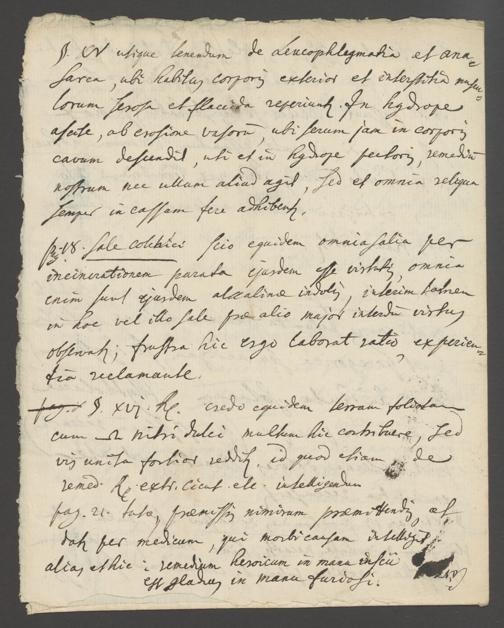 §. XV utique tenendum de Leucophlegmatia et ana-
sarca, ubi habitus corporis exterior et interstitia muscu-
lorum serosa et flaccida reperiunt. In hydrope
ascite, ab erosione vasorū, ubi serum jam in corporis
cavum descendit, uti et in hydrope pectoris, remediū
nostrum nec ullum aliud agit, sed et omnia reliqua
semper in cassum fere adhibent.
pg. 18. Sale colchici scio equidem omnia salia per
incinerationem parata ejusdem esse virtutis, omnia
enim sunt ejusdem alcalinae indolis, interim tamen
in hoc vel illo sale prae alio major interdū virtus
observat; frustra hic ergo laborat ratio, experien-
tia reclamante.
pag. §. XVI. Rc. credo equidem terram foliatam
cum nitri dulci multum hic contribuere, sed
vis unita fortior reddit, id quod etiam de
remed. Rc. extr. cicut. etc. intelligendum
pag. 21. tuto, praemissis nimirum praemittendis, et
dat per medicum, qui morbi causam intelligit
alias et hic: remedium heroicum in manu inscii
est gladius in manu furiosi.